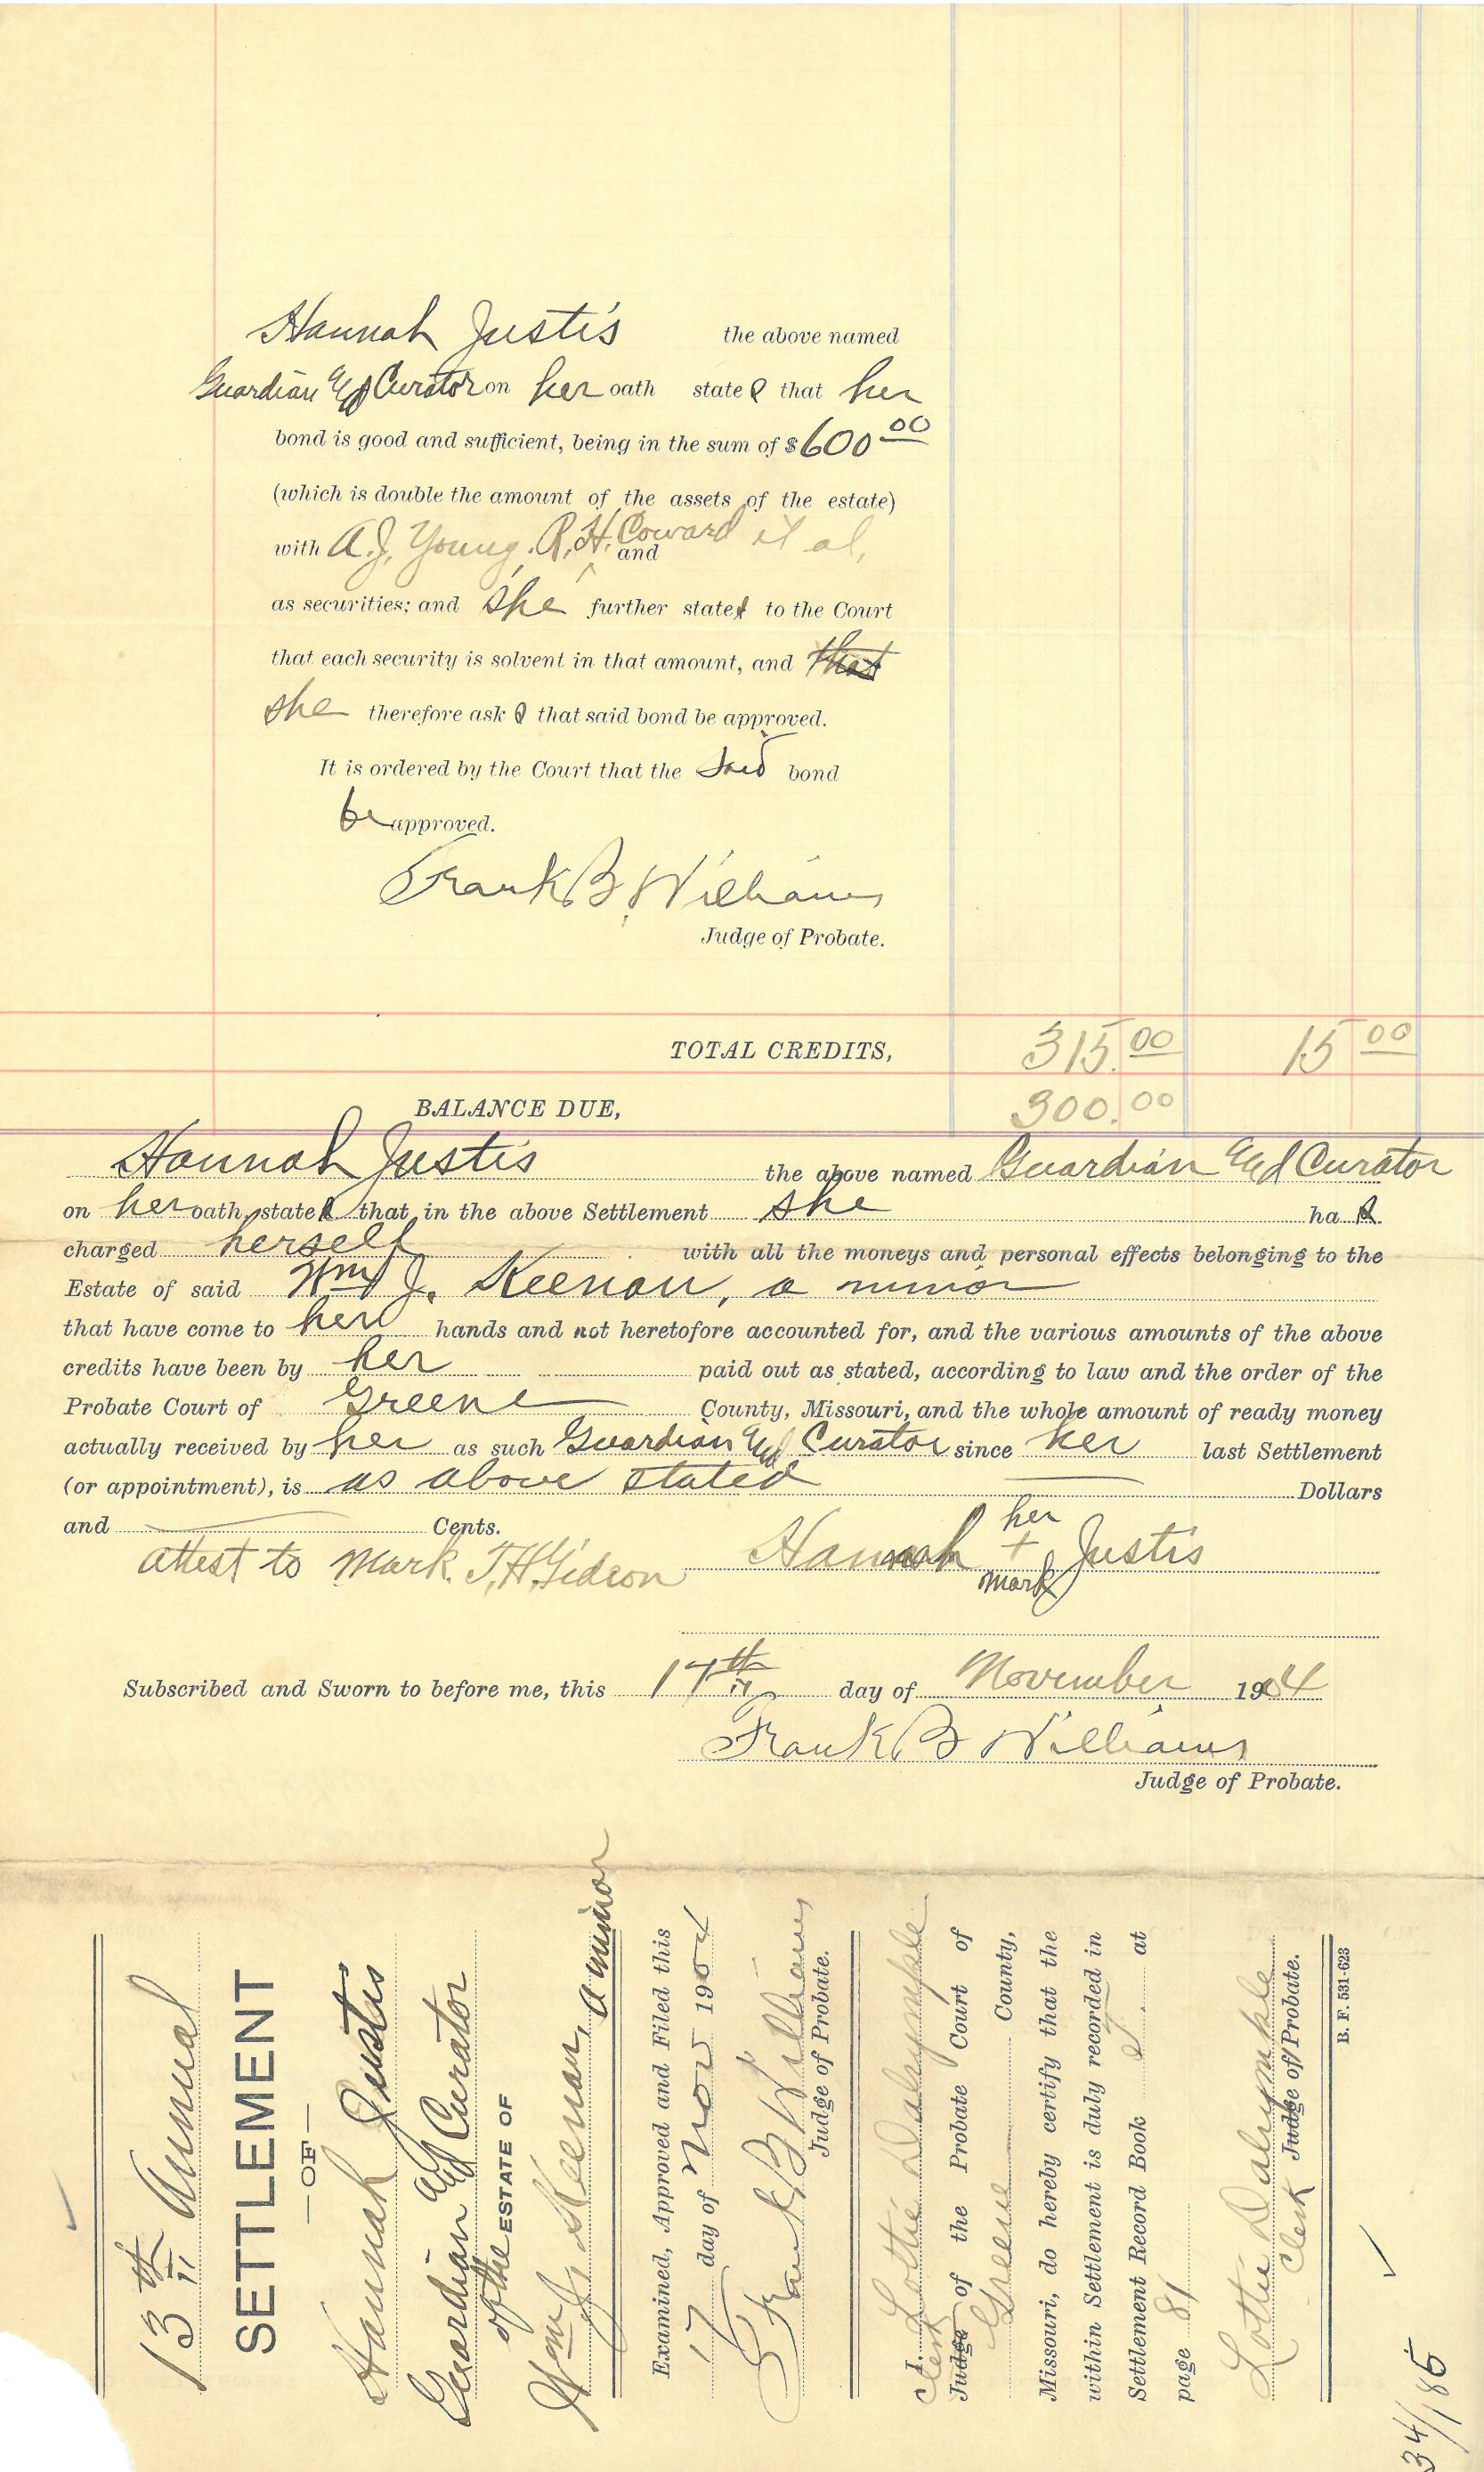 Hannah Justis the above named
Guardian and Curator on her oath states that her
bond is good and sufficient, being in the sum of $ 600 00
(which is double the amount of the assets of the estate)
with A.J. Young, R.H. Coward and et al,
as securities; and she further states to the Court
that each security is solvent in that amount, and that
she therefore asks that said bond be approved.
It is ordered by the Court that the said bond
be approved.
Frank B. Williams
Judge of Probate.
TOTAL CREDITS, 315.00 15 00
BALANCE DUE, 300.00
Hannah Justis the above named Guardian and Curator
on her oath, states that in the above Settlement she has
charged herself with all the moneys and personal effects belonging to the
Estate of said Wm J. Keenan, a minor
that have come to her hands and not heretofore accounted for, and the various amounts of the above
credits have been by her paid out as stated, according to law and the order of the
Probate Court of Greene County, Missouri, and the whole amount of ready money
actually received by her as such Guardian and Curator since her last Settlement
(or appointment), is as above stated Dollars
and Cents.
her
attest to mark. T.H. Gideon Hannah + Justis
mark
Subscribed and Sworn to before me, this 17th day of November 1904
Frank B Williams
Judge of Probate.
13th Annual
SETTLEMENT
—OF—
Hannah Justis
Guardian and Curator
of the ESTATE OF
Wm J. Keenan, a minor
Examined, Approved and Filed this
17 day of Nov 1904
Frank B Williams
Judge of Probate.
I, Lottie Dalrymple
Clerk Judge of the Probate Court of
Greene County,
Missouri, do hereby certify that the
within Settlement is duly recorded in
Settlement Record Book at
page 81
Lottie Dalrymple
Clerk Judge of Probate.
B. F. 531-623
34/185